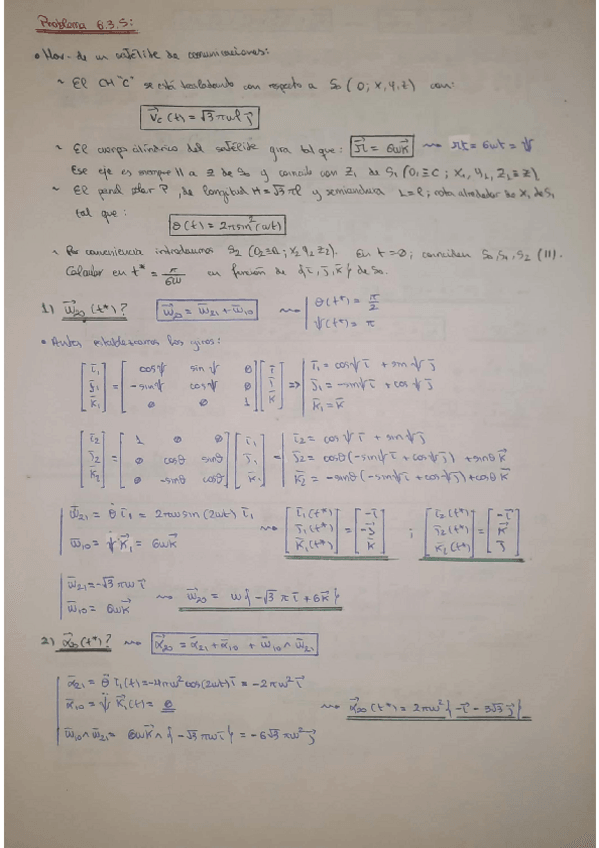 Problema 6.3.5:
• Mov. de un satélite de comunicaciones:
~ El CM "C" se está trasladando con respecto a S₀ (O; x, y, z) con:
v⃗c (t) = √3 πωl j⃗
~ El cuerpo cilíndrico del satélite gira tal que: Ω⃗ = 6ωk⃗ ⇝ Ωt = 6ωt = ψ
Ese eje es siempre // a z de S₀ y coincide con z₁ de S₁ (O₁≡C; x₁, y₁, z₁≡z)
~ El panel solar P, de longitud H=√3 πl y semianchura L=l; rota alrededor de x₁ de S₁
tal que:
θ(t) = 2π sin²(ωt)
~ Por conveniencia introducimos S₂ (O₂≡ ; x₂ y₂ z₂). En t=0; coinciden S₀, S₁, S₂ (//).
Calcular en t* = π/6ω en función de {i⃗, j⃗, k⃗} de S₀.
1) ω⃗₂₀(t*)? ω⃗₂₀ = ω̄₂₁ + ω̄₁₀ ⇝ | θ(t*) = π/2
| ψ(t*) = π
• Antes establecemos los giros:
[ī₁ j̄₁ k̄₁] = [cosψ sinψ 0; -sinψ cosψ 0; 0 0 1] [ī j̄ k̄] => | ī₁ = cosψ ī + sinψ j̄
| j̄₁ = -sinψ ī + cosψ j̄
| k̄₁ = k̄
[ī₂ j̄₂ k̄₂] = [1 0 0; 0 cosθ sinθ; 0 -sinθ cosθ] [ī₁ j̄₁ k̄₁] = | ī₂ = cosψ ī + sinψ j̄
| j̄₂ = cosθ(-sinψ ī + cosψ j̄) + sinθ k̄
| k̄₂ = -sinθ(-sinψ ī + cosψ j̄) + cosθ k̄
| ω̄₂₁ = θ̇ ī₁ = 2πω sin(2ωt) ī₁ ⇝ [ī₁(t*) j̄₁(t*) k̄₁(t*)] = [-ī -j̄ k̄] ; [ī₂(t*) j̄₂(t*) k̄₂(t*)] = [-ī k̄ j̄]
| ω̄₁₀ = ψ̇ k̄₁ = 6ωk̄
| ω̄₂₁ = -√3 πω ī ⇝ ω⃗₂₀ = ω{-√3 π ī + 6k̄}
| ω̄₁₀ = 6ωk̄
2) α⃗₂₀(t*)? ⇝ α⃗₂₀ = ᾱ₂₁ + ᾱ₁₀ + ω̄₁₀ ∧ ω̄₂₁
| ᾱ₂₁ = θ̈ ī₁(t) = -4πω² cos(2ωt) ī = -2πω² ī
| ᾱ₁₀ = ψ̈ k̄₁(t) = 0 ⇝ α⃗₂₀(t*) = 2πω² {-ī - 3√3 j̄}
| ω̄₁₀ ∧ ω̄₂₁ = 6ωk̄ ∧ {-√3 πω ī} = -6√3 πω² j̄